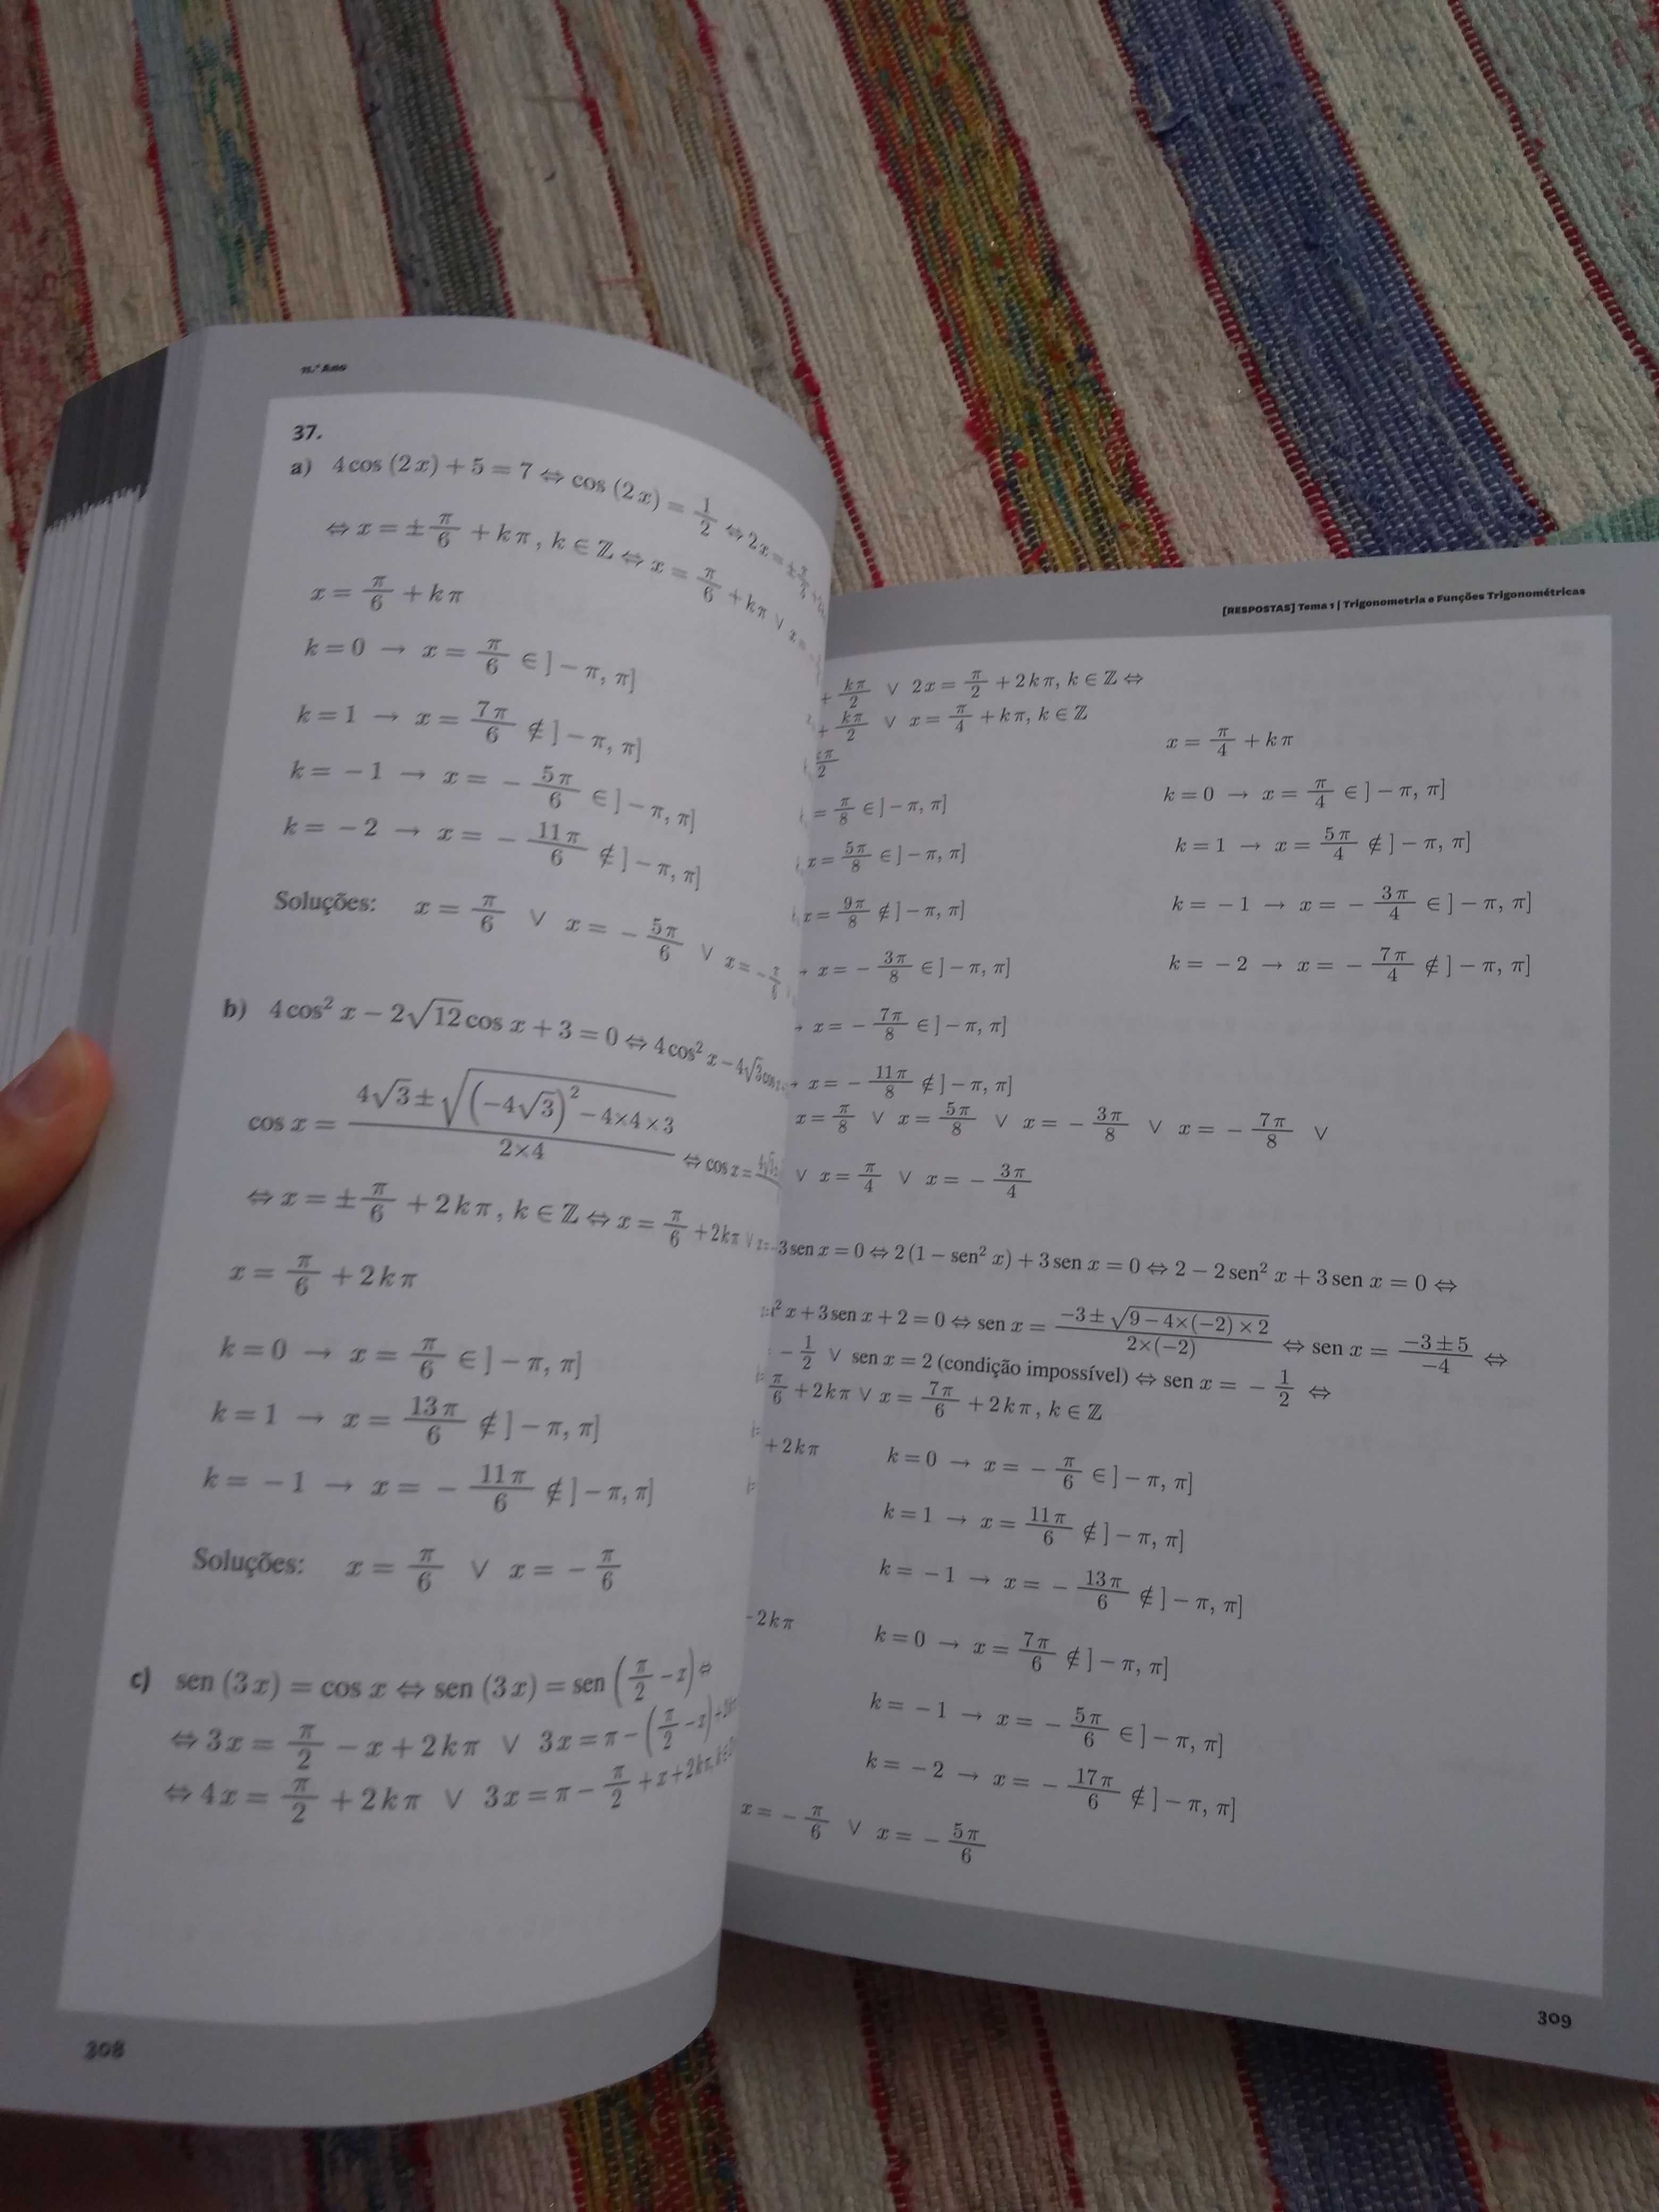 11.º Ano
37.
a) 4 cos (2x) + 5 = 7 ⇔ cos (2x) = 1/2 ⇔ 2x = ±
⇔ x = ± π/6 + kπ, k ∈ ℤ ⇔ x = π/6 + kπ ∨ x =
x = π/6 + kπ
k = 0 → x = π/6 ∈ ]−π, π]
k = 1 → x = 7π/6 ∉ ]−π, π]
k = −1 → x = − 5π/6 ∈ ]−π, π]
k = −2 → x = − 11π/6 ∉ ]−π, π]
Soluções: x = π/6 ∨ x = − 5π/6 ∨ x = −
b) 4 cos² x − 2√12 cos x + 3 = 0 ⇔ 4 cos² x − 4√3 cos x
cos x = (4√3 ± √((−4√3)² − 4×4×3))/(2×4) ⇔ cos x =
⇔ x = ± π/6 + 2kπ, k ∈ ℤ ⇔ x = π/6 + 2kπ ∨ x = −
x = π/6 + 2kπ
k = 0 → x = π/6 ∈ ]−π, π]
k = 1 → x = 13π/6 ∉ ]−π, π]
k = −1 → x = − 11π/6 ∉ ]−π, π]
Soluções: x = π/6 ∨ x = − π/6
c) sen (3x) = cos x ⇔ sen (3x) = sen (π/2 − x) ⇔
⇔ 3x = π/2 − x + 2kπ ∨ 3x = π − (π/2 − x) +
⇔ 4x = π/2 + 2kπ ∨ 3x = π − π/2 + x + 2kπ, k ∈
308
[RESPOSTAS] Tema 1 | Trigonometria e Funções Trigonométricas
+ kπ/2 ∨ 2x = π/2 + 2kπ, k ∈ ℤ ⇔
+ kπ/2 ∨ x = π/4 + kπ, k ∈ ℤ
π/2
= π/8 ∈ ]−π, π]
x = 5π/8 ∈ ]−π, π]
x = 9π/8 ∉ ]−π, π]
→ x = − 3π/8 ∈ ]−π, π]
→ x = − 7π/8 ∈ ]−π, π]
→ x = − 11π/8 ∉ ]−π, π]
x = π/4 + kπ
k = 0 → x = π/4 ∈ ]−π, π]
k = 1 → x = 5π/4 ∉ ]−π, π]
k = −1 → x = − 3π/4 ∈ ]−π, π]
k = −2 → x = − 7π/4 ∉ ]−π, π]
x = π/8 ∨ x = 5π/8 ∨ x = − 3π/8 ∨ x = − 7π/8 ∨
∨ x = π/4 ∨ x = − 3π/4
3 sen x = 0 ⇔ 2(1 − sen² x) + 3 sen x = 0 ⇔ 2 − 2 sen² x + 3 sen x = 0 ⇔
² x + 3 sen x + 2 = 0 ⇔ sen x = (−3 ± √(9 − 4×(−2)×2))/(2×(−2)) ⇔ sen x = (−3 ± 5)/−4 ⇔
− 1/2 ∨ sen x = 2 (condição impossível) ⇔ sen x = − 1/2 ⇔
π/6 + 2kπ ∨ x = 7π/6 + 2kπ, k ∈ ℤ
+ 2kπ k = 0 → x = − π/6 ∈ ]−π, π]
k = 1 → x = 11π/6 ∉ ]−π, π]
k = −1 → x = − 13π/6 ∉ ]−π, π]
2kπ k = 0 → x = 7π/6 ∉ ]−π, π]
k = −1 → x = − 5π/6 ∈ ]−π, π]
k = −2 → x = − 17π/6 ∉ ]−π, π]
x = − π/6 ∨ x = − 5π/6
309